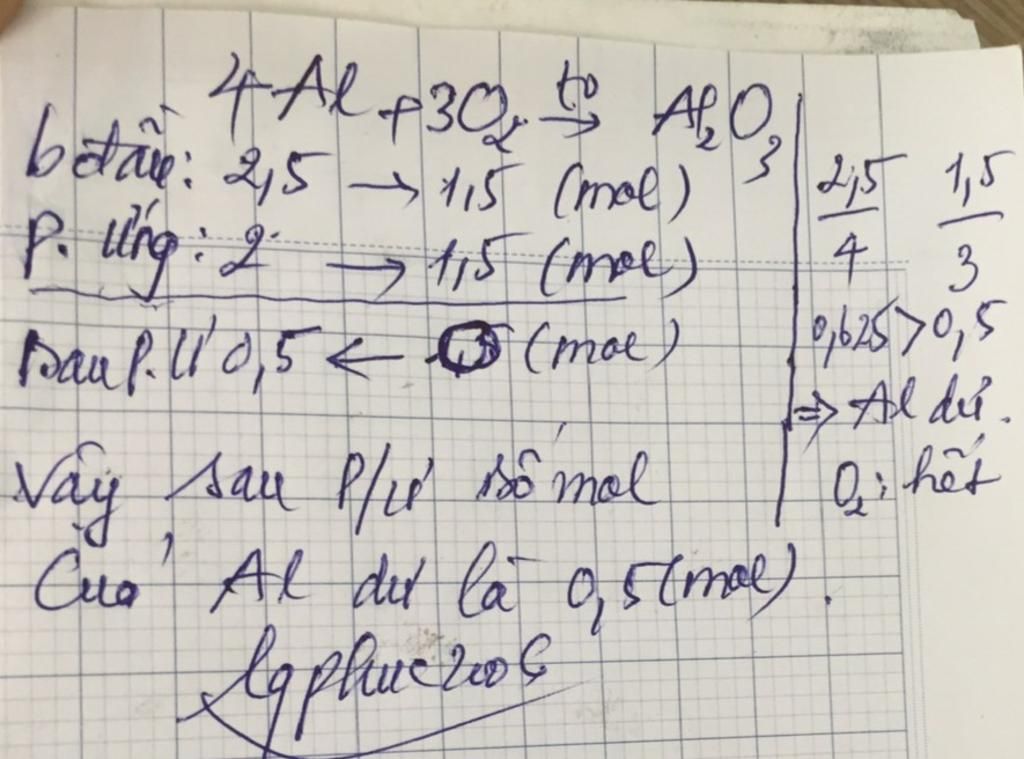 4Al + 3O₂ t⁰→ Al₂O₃
b đầu: 2,5 → 1,5 (mol)
P. Ứng: 2 → 1,5 (mol)
Sau P.Ứ 0,5 ← (mol)
Vậy sau P/Ứ số mol
Của Al dư là 0,5 (mol).
2,5/4 1,5/3
0,625 > 0,5
⇒ Al dư.
O₂: hết